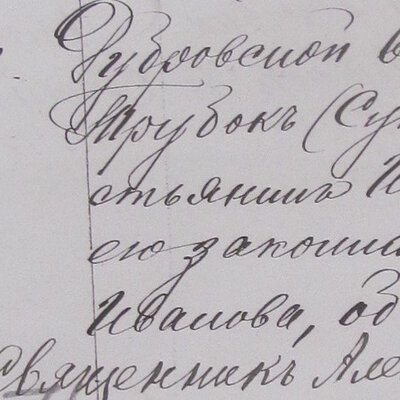 Дубровской в
Трубокъ (Су
стьянинъ И
ею законна
Иванова, об
Священникъ Але